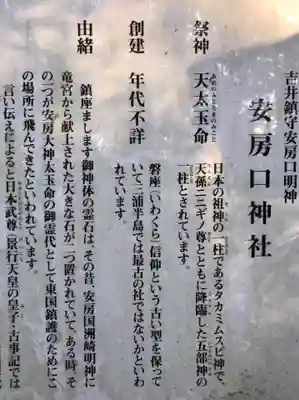 吉井鎮守安房口明神
安房口神社
祭神 天太玉命
あめのふとたまのみこと
日本の祖神の一柱であるタカミムスビ神で、
天孫ニニギノ尊とともに降臨した五部神の
一柱とされています。
創建 年代不詳
磐座(いわくら)信仰という古い型を保って
いて三浦半島では最古の社ではないかといわ
れています。
由緒
鎮座まします御神体の霊石は、その昔、安房国洲崎明神に
竜宮から献上された大きな石が二つ置かれていて、ある時、そ
の二つが安房大神太玉命の御霊代として東国鎮護のためにこ
の場所に飛んできたといわれています。
言い伝えによると日本武尊(景行天皇の皇子・古事記では